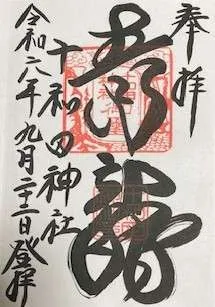 奉拝
青龍
十和田神社
令和六年九月二十二日登拝